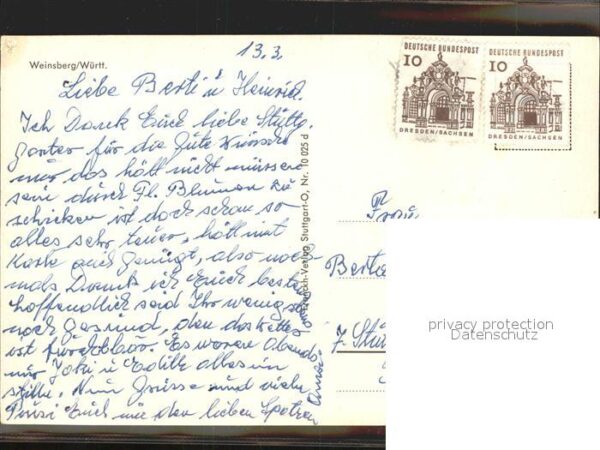 Weinsberg/Württ.
13.3.
Liebe Berti u Heinrich.
Ich Dank Euch liebe Stuttg.
garter für die Gute Wünsche
nur das hätt nicht müssen
sein durch Fl. Blumen zu
schicken ist doch schon so
alles sehr teuer, hätt mit
Karte auch genügt, also noch
mals Dank ich Euch besten
hoffendlich seid Ihr wenigs
noch gesund, den das Wetter
ist furchtbar. Es waren Abends
nur Joki u Edith alles in
stille. Nun Grüsse und viele
Bussi Euch mit den lieben Spatzen
Anni
DEUTSCHE BUNDESPOST
10
DRESDEN/SACHSEN
DEUTSCHE BUNDESPOST
10
DRESDEN/SACHSEN
Verlag Stuttgart-O, Nr. 10 025 d
Frau
Berta
7. Stu
privacy protection
Datenschutz